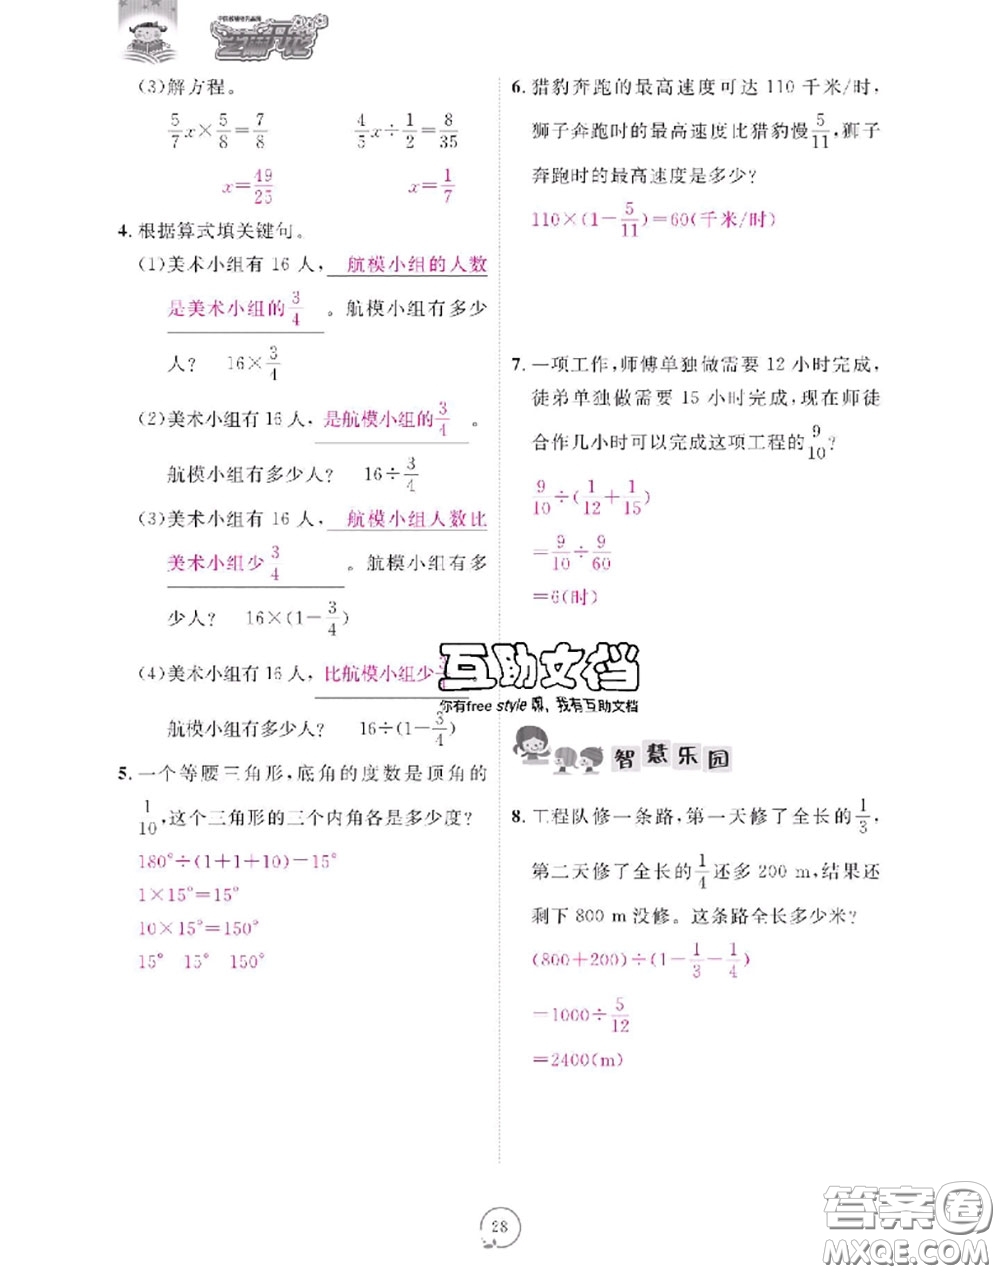 芝麻开花
(3)解方程。
5/7 x×5/8=7/8 4/5 x÷1/2=8/35
x=49/25 x=1/7
4. 根据算式填关键句。
(1)美术小组有 16 人, 航模小组的人数
是美术小组的3/4 。航模小组有多少
人? 16×3/4
(2)美术小组有 16 人, 是航模小组的3/4 。
航模小组有多少人? 16÷3/4
(3)美术小组有 16 人, 航模小组人数比
美术小组少3/4 。航模小组有多
少人? 16×(1-3/4)
(4)美术小组有 16 人, 比航模小组少
航模小组有多少人? 16÷(1-3/4)
5. 一个等腰三角形,底角的度数是顶角的
1/10,这个三角形的三个内角各是多少度?
180°÷(1+1+10)=15°
1×15°=15°
10×15°=150°
15° 15° 150°
6. 猎豹奔跑的最高速度可达 110 千米/时,
狮子奔跑时的最高速度比猎豹慢5/11,狮子
奔跑时的最高速度是多少?
110×(1-5/11)=60(千米/时)
7. 一项工作,师傅单独做需要 12 小时完成,
徒弟单独做需要 15 小时完成,现在师徒
合作几小时可以完成这项工程的9/10?
9/10÷(1/12+1/15)
=9/10÷9/60
=6(时)
互助文档
你有free style 嘛, 我有互助文档
智慧乐园
8. 工程队修一条路,第一天修了全长的1/3,
第二天修了全长的1/4还多 200 m,结果还
剩下 800 m没修。这条路全长多少米?
(800+200)÷(1-1/3-1/4)
=1000÷5/12
=2400(m)
28
答案圈
MXQE.COM